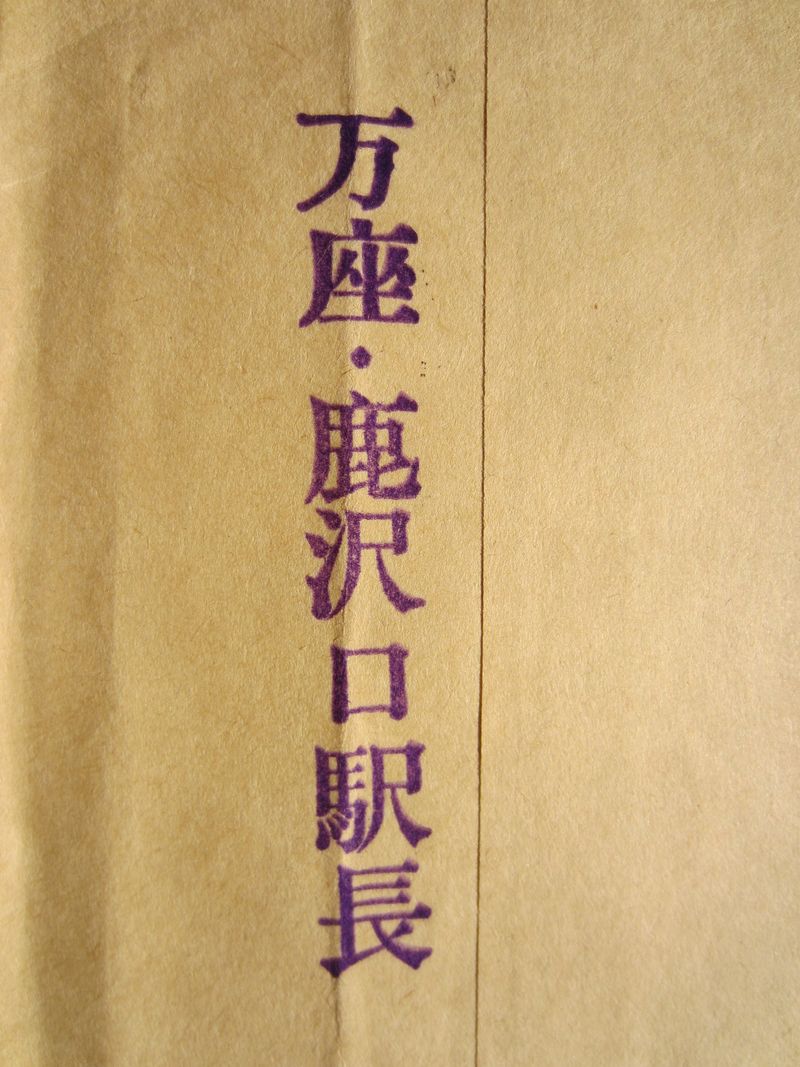 万座・鹿沢口駅長